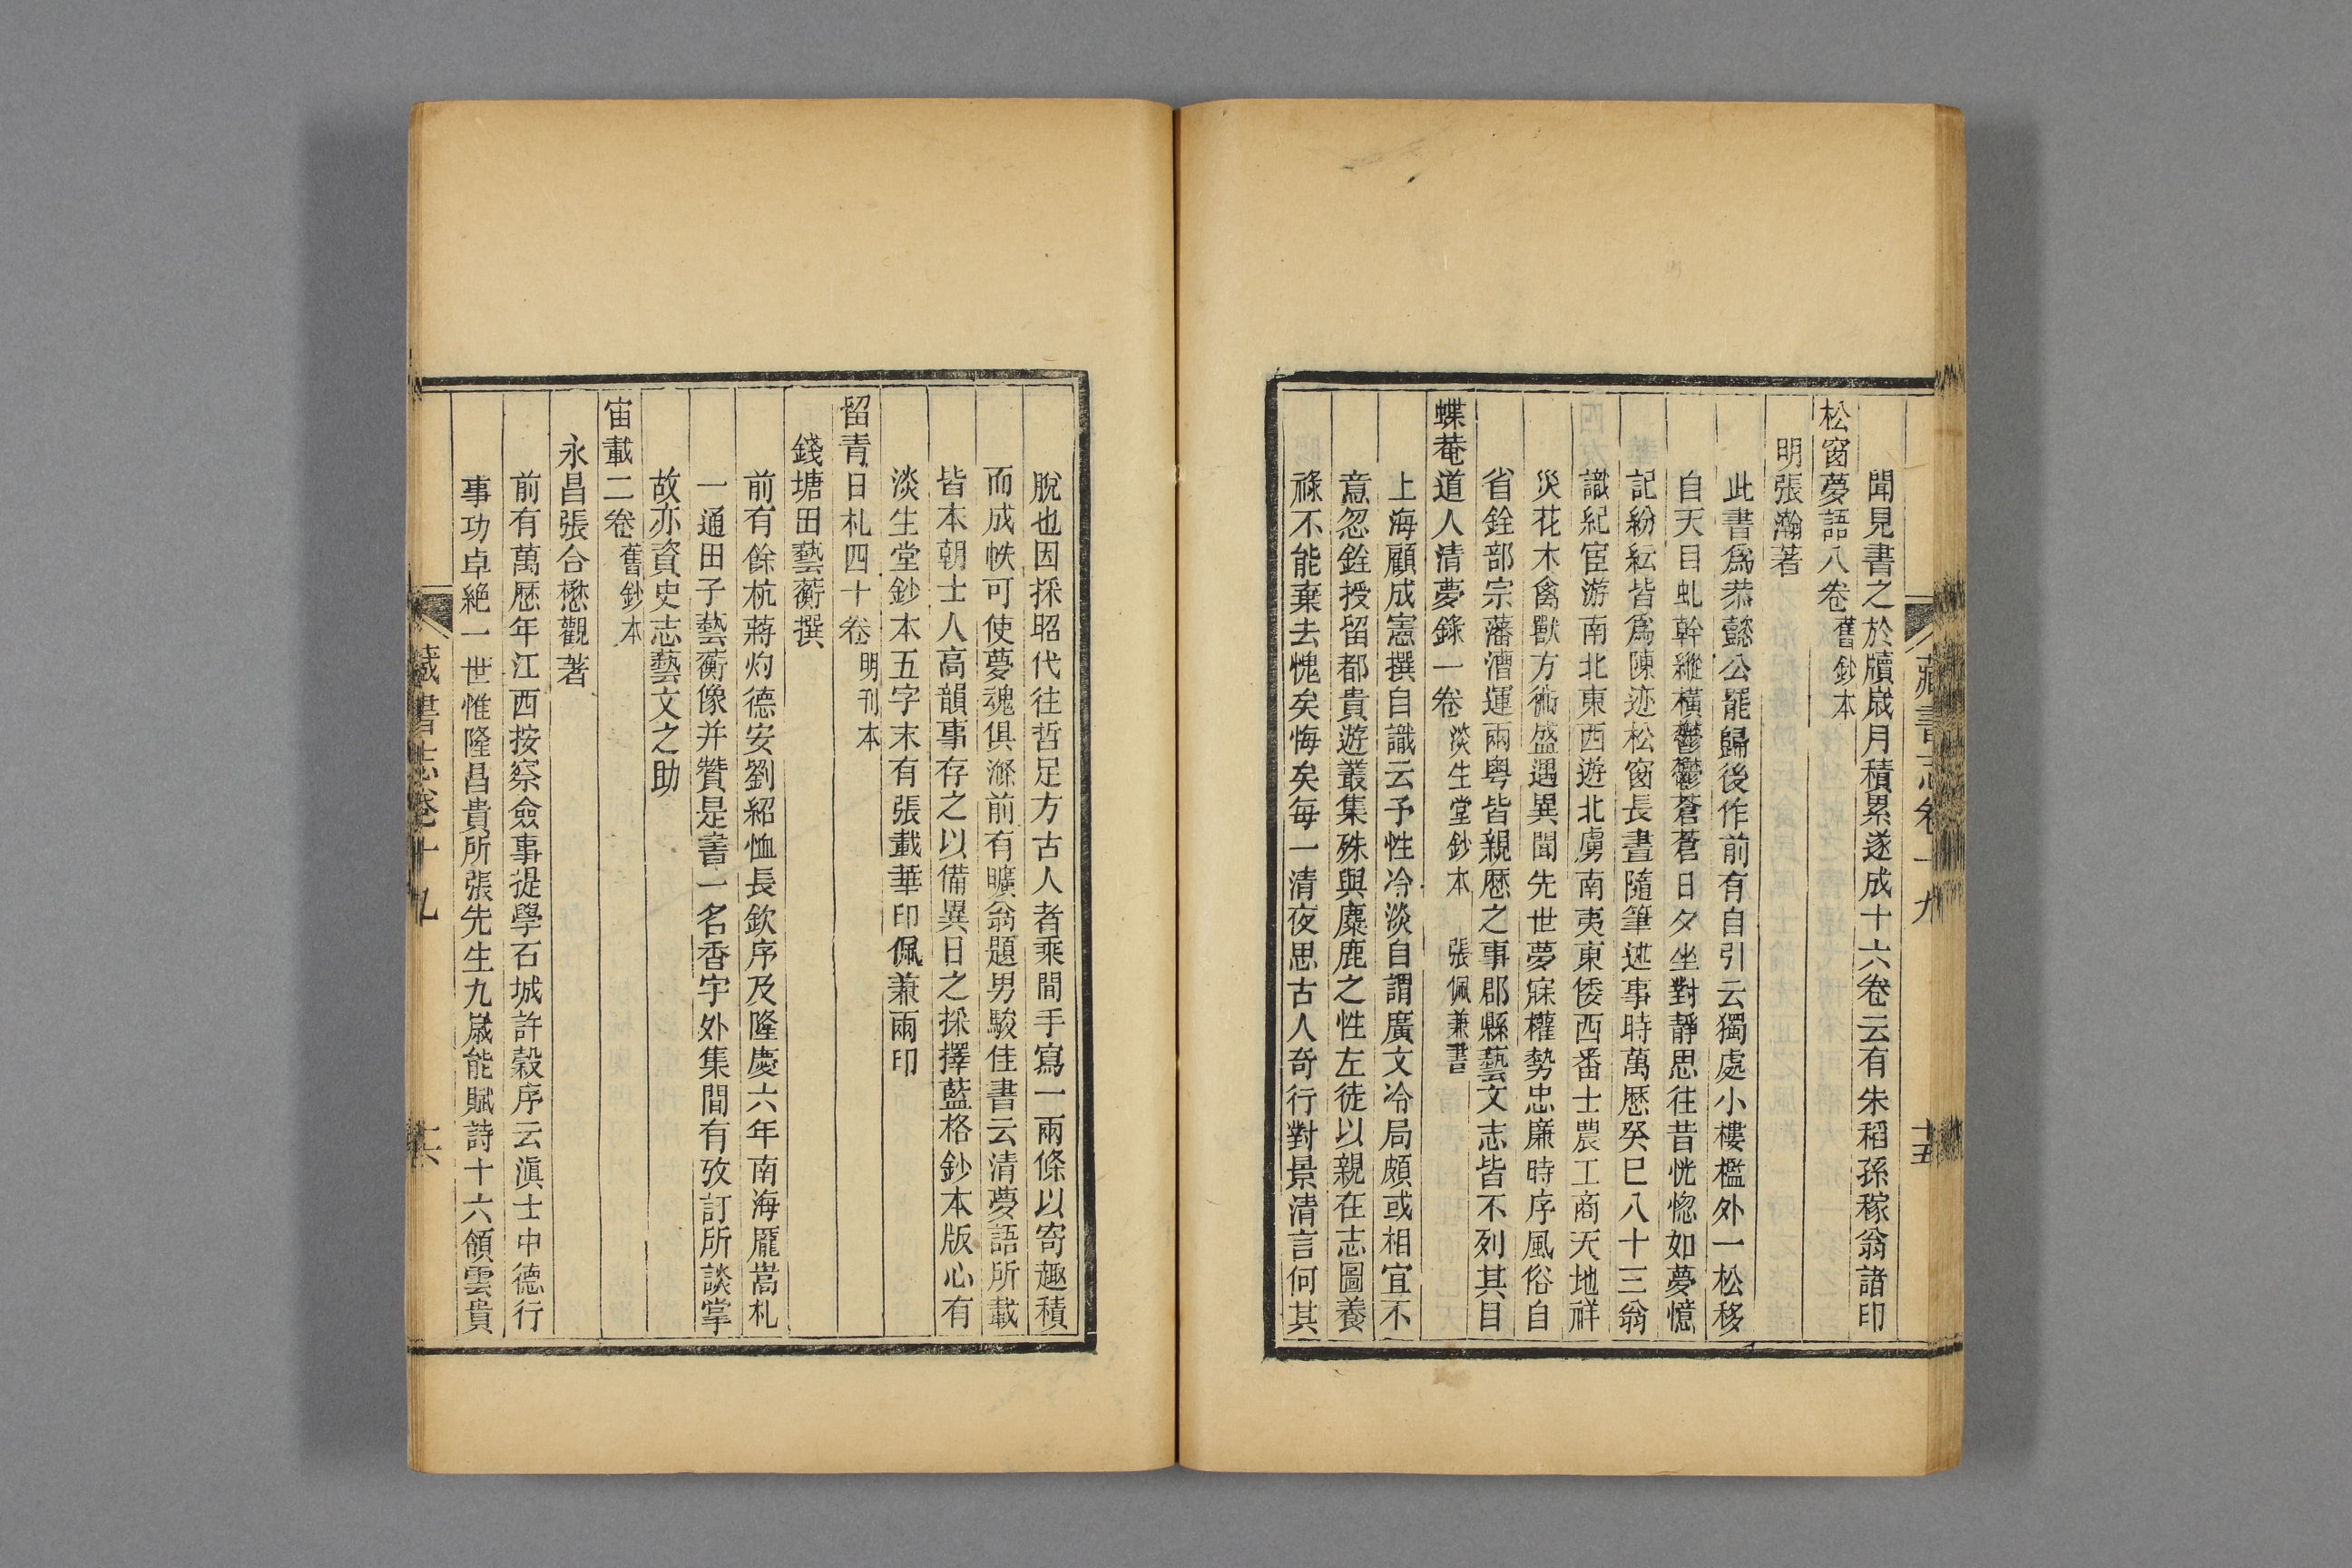 藏書志卷十九
十五
聞見書之於牘嵗月積累遂成十六卷云有朱稻孫稼翁諸印
松窗夢語八卷舊鈔本
明張瀚著
此書爲恭懿公罷歸後作前有自引云獨處小樓檻外一松移
自天目虬幹縱橫鬱鬱蒼蒼日夕坐對靜思往昔恍惚如夢憶
記紛紜皆爲陳迹松窗長晝隨筆述事時萬厯癸巳八十三翁
識紀宦游南北東西遊北虜南夷東倭西番士農工商天地祥
災花木禽獸方術盛遇異聞先世夢寐權勢忠廉時序風俗自
省銓部宗藩漕運兩粤皆親厯之事郡縣藝文志皆不列其目
蝶菴道人清夢錄一卷淡生堂鈔本 張佩兼書
上海顧成憲撰自識云予性冷淡自謂廣文冷局頗或相宜不
意忽銓授留都貴遊叢集殊與麋鹿之性左徒以親在志圖養
祿不能棄去愧矣悔矣每一清夜思古人奇行對景清言何其
脫也因採昭代往哲足方古人者乘間手寫一兩條以寄趣積
而成帙可使夢魂俱滌前有曠翁題男駿佳書云清夢語所載
皆本朝士人高韻事存之以備異日之採擇藍格鈔本版心有
淡生堂鈔本五字末有張載華印佩兼兩印
留青日札四十卷明刊本
錢塘田藝蘅撰
前有餘杭蔣灼德安劉紹恤長欽序及隆慶六年南海龎嵩札
一通田子藝蘅像并贊是書一名香宇外集間有攷訂所談掌
故亦資史志藝文之助
宙載二卷舊鈔本
永昌張合懋觀著
前有萬厯年江西按察僉事提學石城許穀序云滇士中德行
事功卓絕一世惟隆昌貴所張先生九嵗能賦詩十六領雲貴
藏書志卷十九
十六